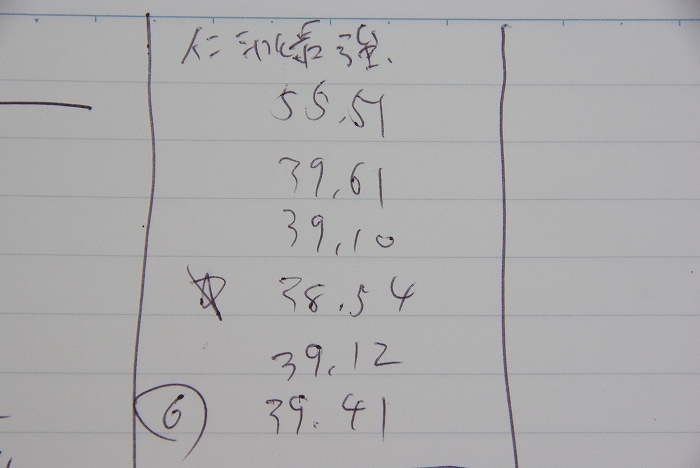 55.51
39.61
39.10
☆ 38.54
39.12
⑥ 39.41